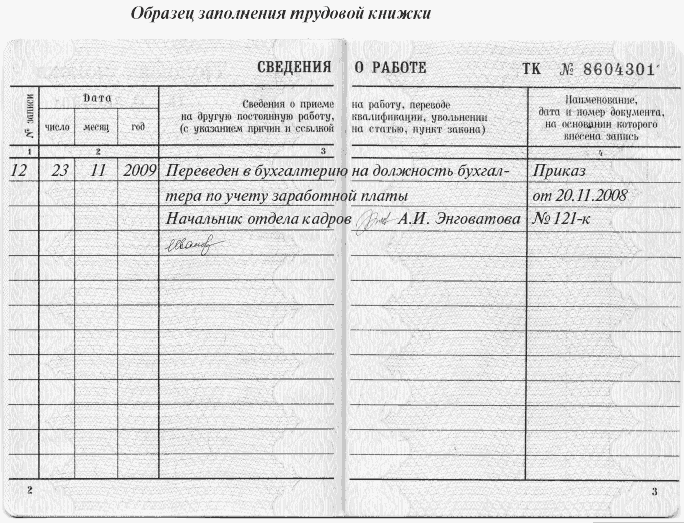 Образец заполнения трудовой книжки
СВЕДЕНИЯ О РАБОТЕ ТК № 8604301
№ записи
Дата
число месяц год
Сведения о приеме на работу, переводе
на другую постоянную работу, квалификации, увольнении
(с указанием причин и ссылкой на статью, пункт закона)
Наименование,
дата и номер документа,
на основании которого
внесена запись
1 2 3 4
12 23 11 2009 Переведен в бухгалтерию на должность бухгал- Приказ
тера по учету заработной платы от 20.11.2008
Начальник отдела кадров А.И. Энговатова № 121-к
Иванов
2 3